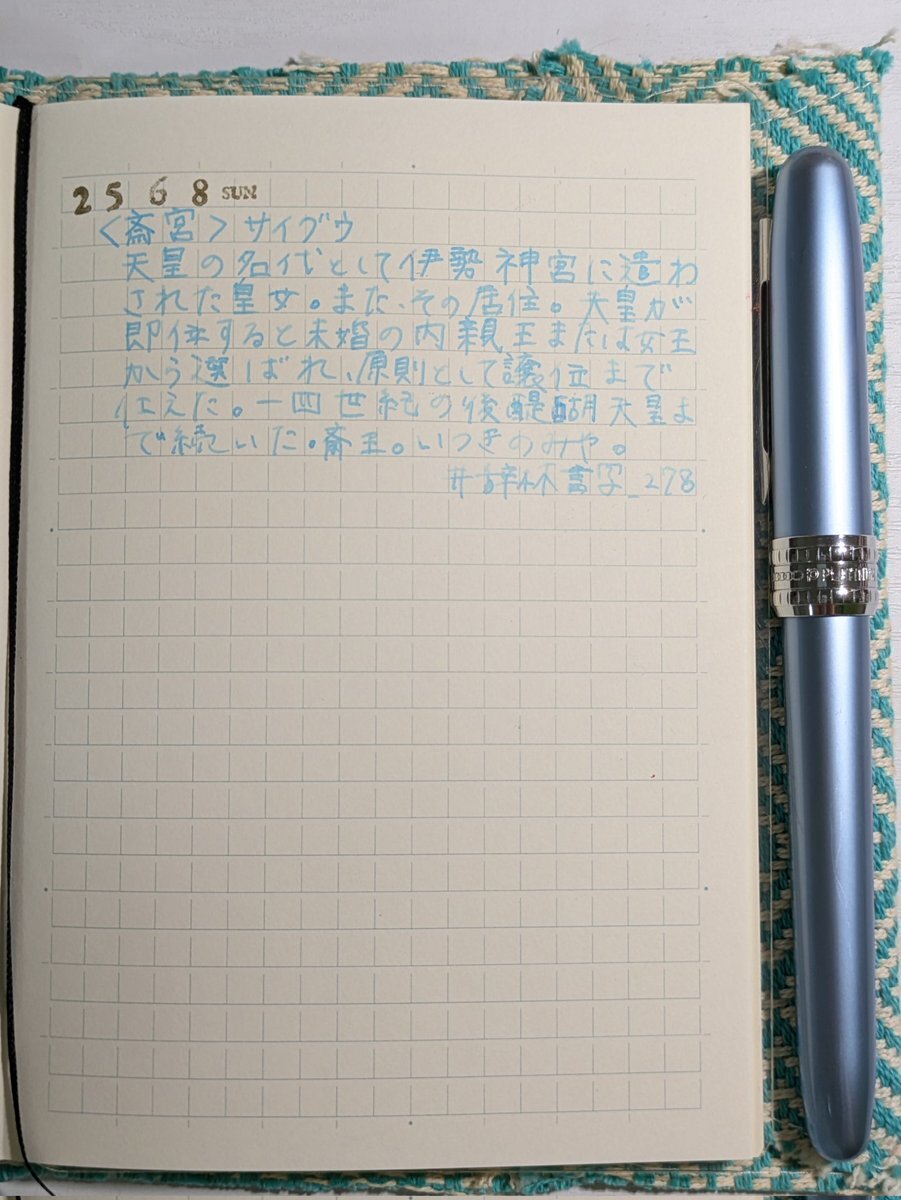 25 6 8 SUN
〈斎宮〉サイグウ
天皇の名代として伊勢神宮に遣わ
された皇女。また、その居住。天皇が
即位すると未婚の内親王または女王
から選ばれ、原則として譲位まで
仕えた。十四世紀の後醍醐天皇ま
で続いた。斎王。いつきのみや。
#辞林書写_278